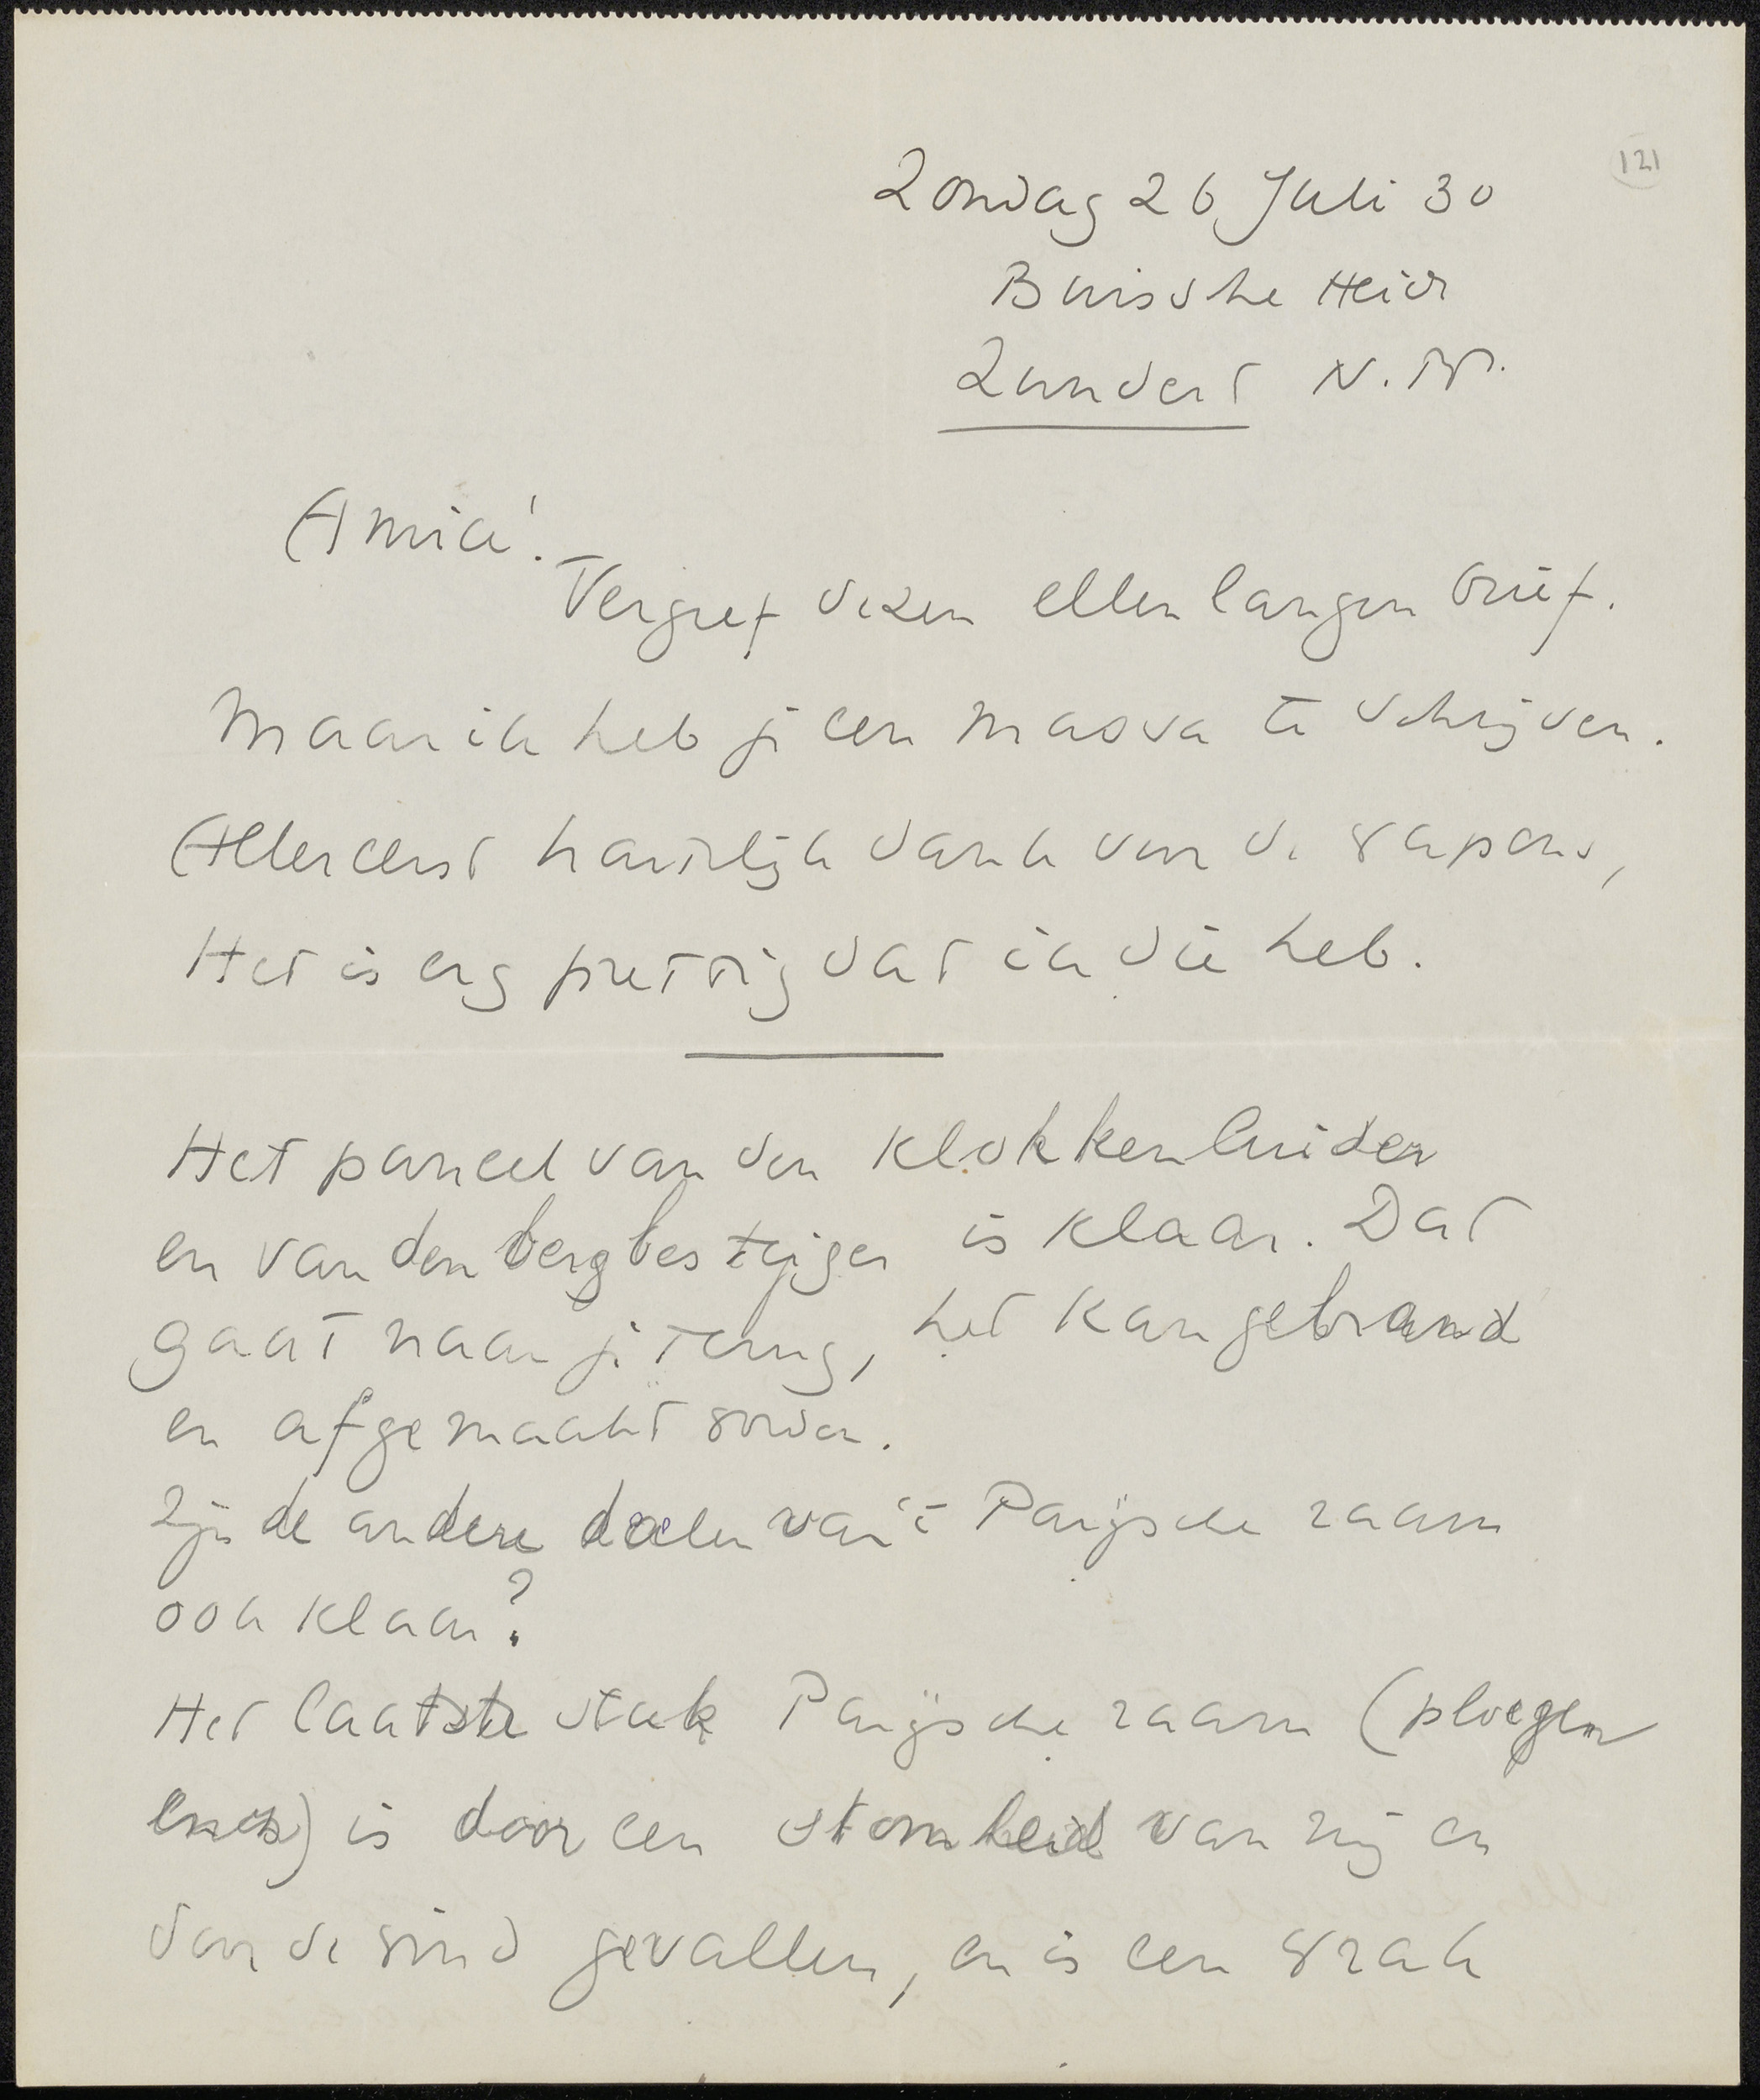 121
Zondag 26 Juli 30
Buissche Heide
Zundert N.B.
Amice!
Vergeef dezen ellenlangen brief.
Maar ik heb je een massa te schrijven.
Allereerst hartelijk dank voor de wapens,
Het is erg prettig dat ik die heb.
Het paneel van den klokkenluider
en van den bergbestijger is klaar. Dat
gaat naar je terug, het kan gebrand
en afgemaakt worden.
Zijn de andere deelen van 't Parijsche raam
ook klaar?
Het laatste stuk Parijsche raam (ploegen
enz) is door een stomheid van mij en
door de wind gevallen, en is een wrak